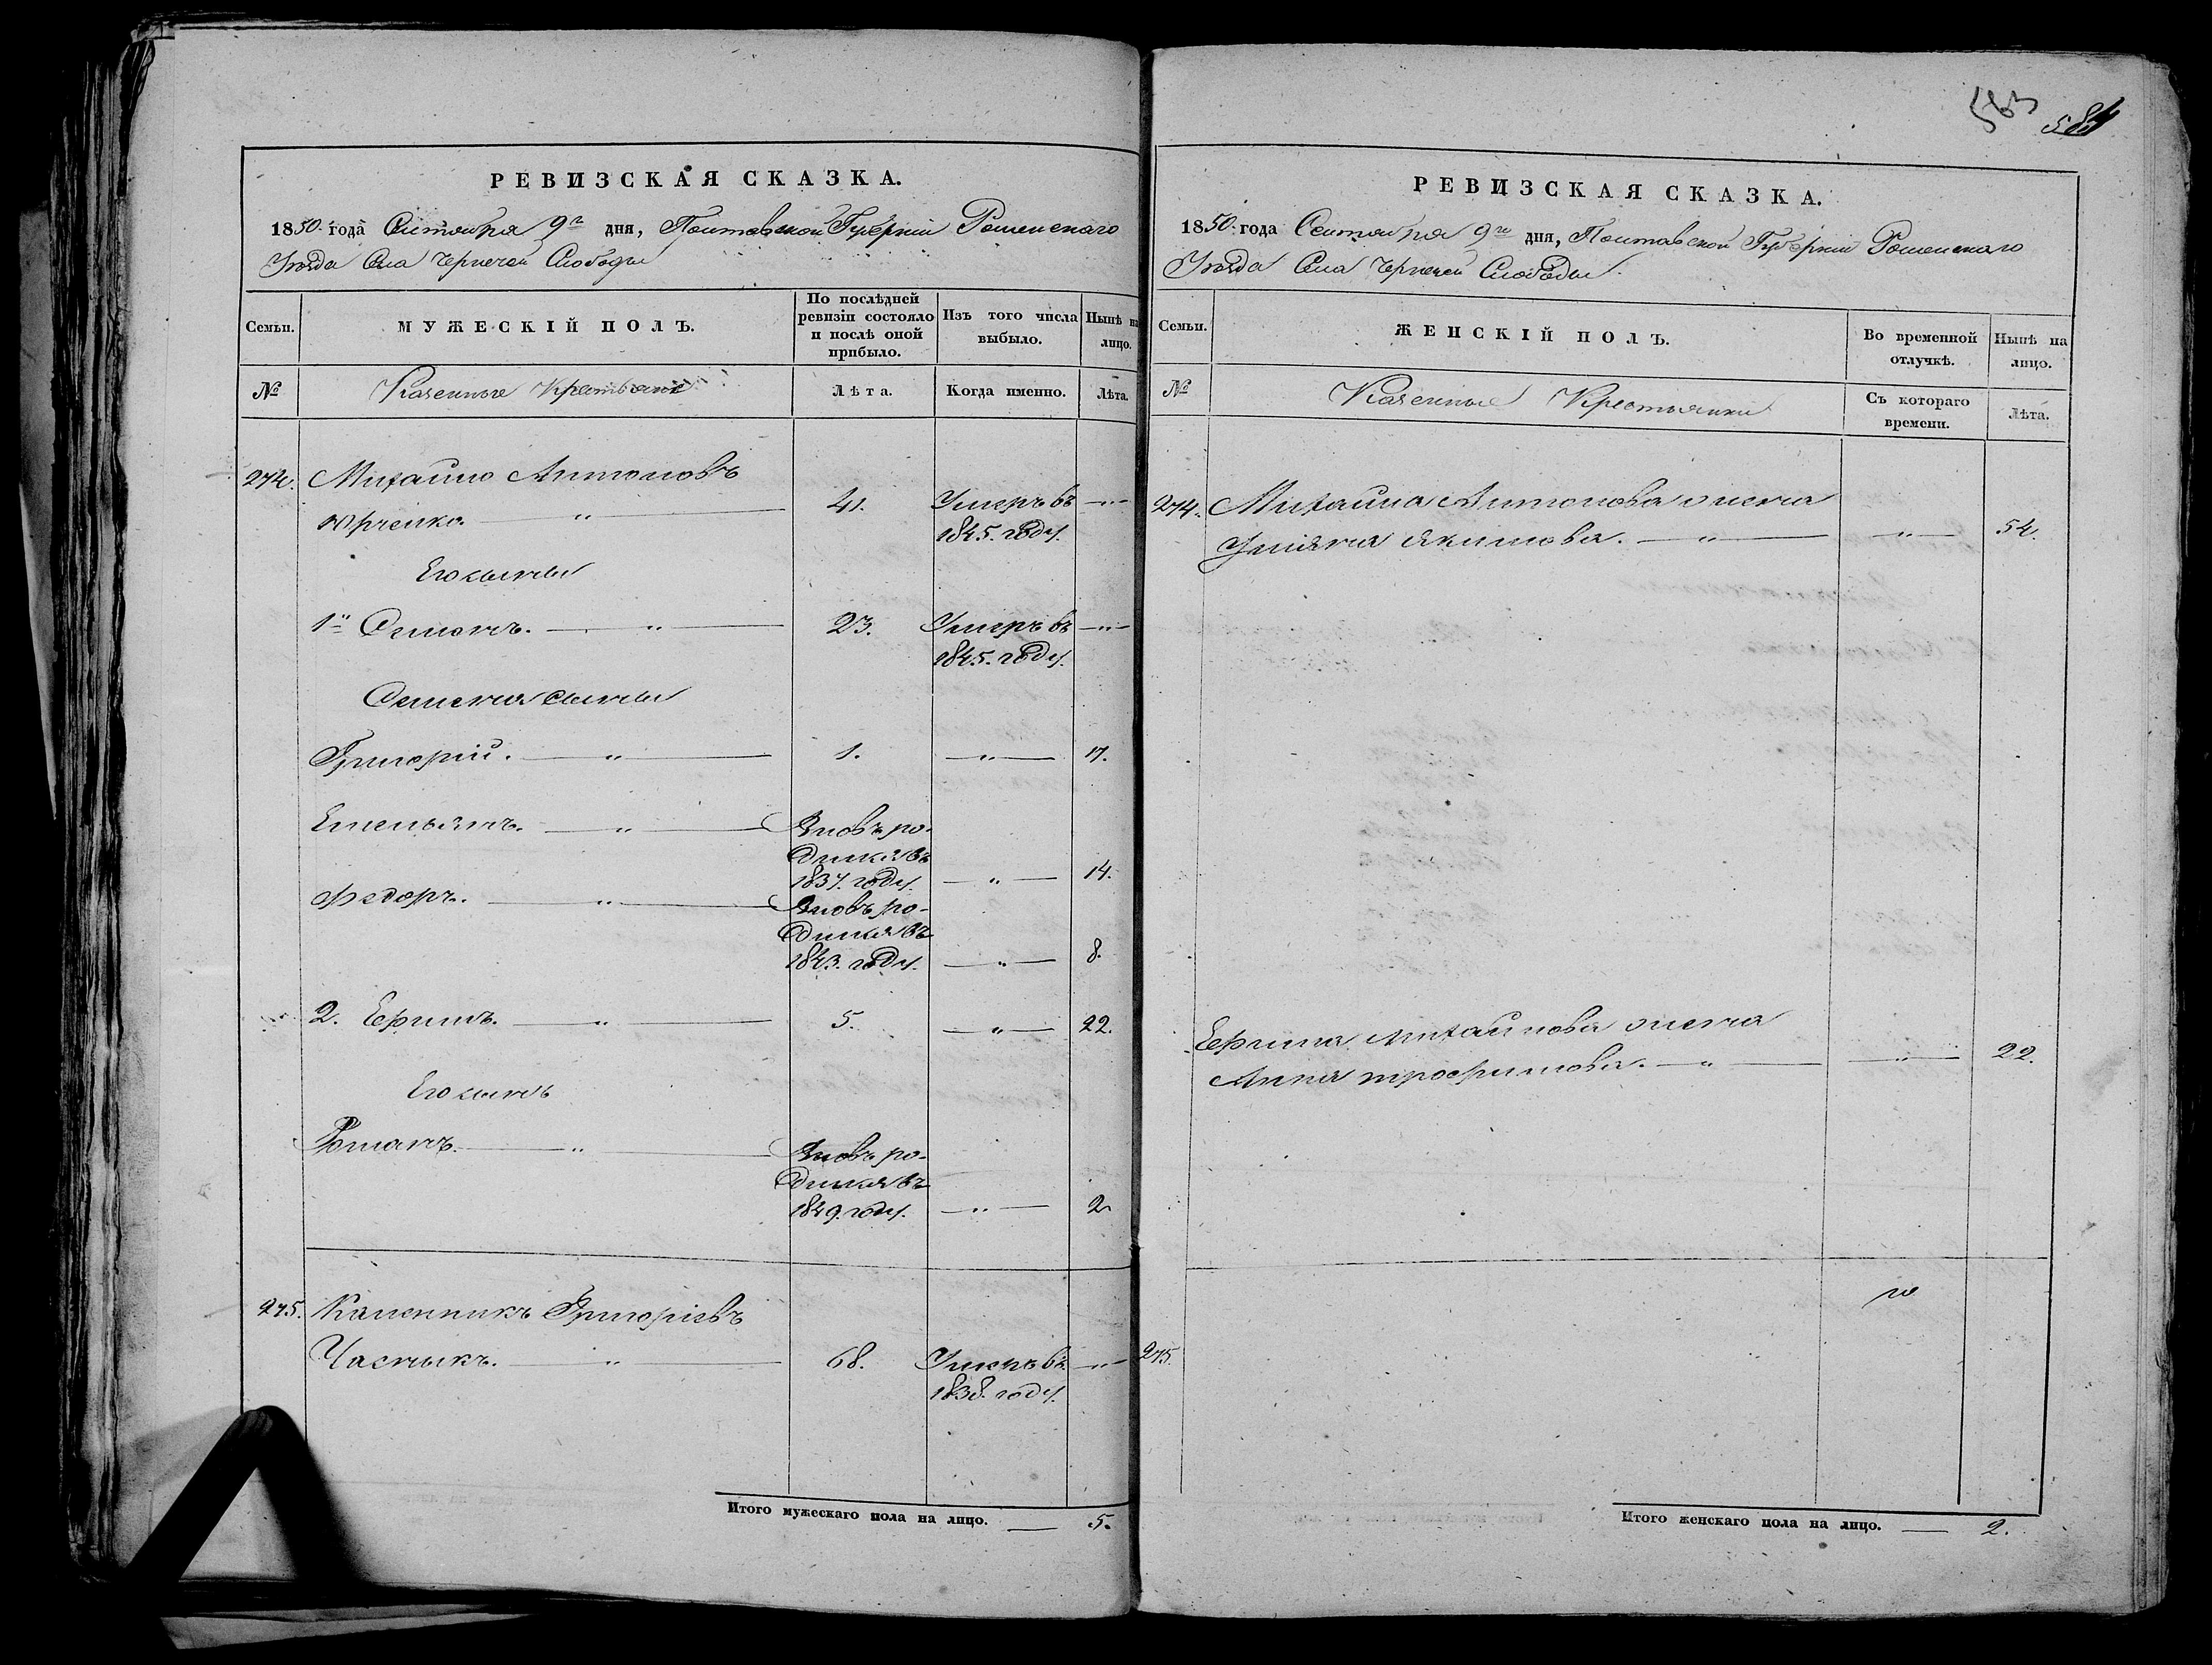 583 584
РЕВИЗСКАЯ СКАЗКА.
1850. года Сентября 9го дня, Полтавской Губерніи Роменскаго
Уѣзда Села Чернечей Слободы
Семьи.
МУЖЕСКІЙ ПОЛЪ.
По послѣдней
ревизіи состояло
и послѣ оной
прибыло.
Изъ того числа
выбыло.
Нынѣ на
лицо.
№
Казенные Крестьяне
Лѣта.
Когда именно.
Лѣта.
274. Михайло Антоновъ
Юрченко. — " — 41. Умеръ въ — " —
1845. году.
Его сыны
1й Семенъ. — " — 23. Умеръ въ — " —
1845. году.
Семена сыны
Григорій. — " — 1. — " — 17.
Емельянъ. — " — Вновь ро-
дился въ
1837. году. — " — 14.
Федоръ. — " — Вновь ро-
дился въ
1843. году. — " — 8.
2. Ефимъ. — " — 5. — " — 22.
Его сынъ
Романъ. — " — Вновь ро-
дился въ
1849. году. — " — 2
275. Каленникъ Григорієвъ
Часныкъ. — " — 68. Умеръ въ — " —
1838. году.
Итого мужескаго пола на лицо. — 5.
РЕВИЗСКАЯ СКАЗКА.
1850. года Сентября 9го дня, Полтавской Губерніи Роменскаго
Уѣзда Села Чернечей Слободы.
Семьи.
ЖЕНСКІЙ ПОЛЪ.
Во временной
отлучкѣ.
Нынѣ на
лицо.
№
Казенные Крестьянки
Съ котораго
времени.
Лѣта.
274. Михайла Антонова жена
Ульяна Якимова. — " — — " — 54.
Ефима Михайлова жена
Анна Трофимова. — " — — " — 22.
275.
Итого женскаго пола на лицо. — 2.